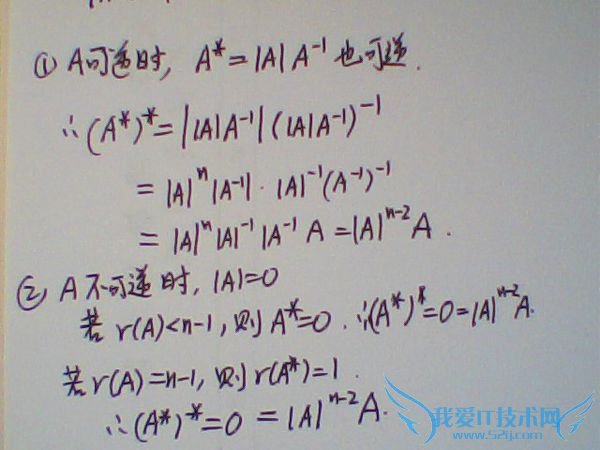 ① A可逆时, A* = |A| A⁻¹ 也可逆.
∴(A*)* = ||A|A⁻¹| (|A|A⁻¹)⁻¹
= |A|ⁿ |A⁻¹| · |A|⁻¹ (A⁻¹)⁻¹
= |A|ⁿ |A|⁻¹ |A⁻¹ A = |A|ⁿ⁻² A .
② A不可逆时, |A|=0
若 r(A)<n-1, 则 A*=0 . ∴(A*)*=0=|A|ⁿ⁻²A.
若 r(A)=n-1, 则 r(A*)=1 .
∴(A*)*=0 = |A|ⁿ⁻² A.
我爱IT技术网
www.52ij.com